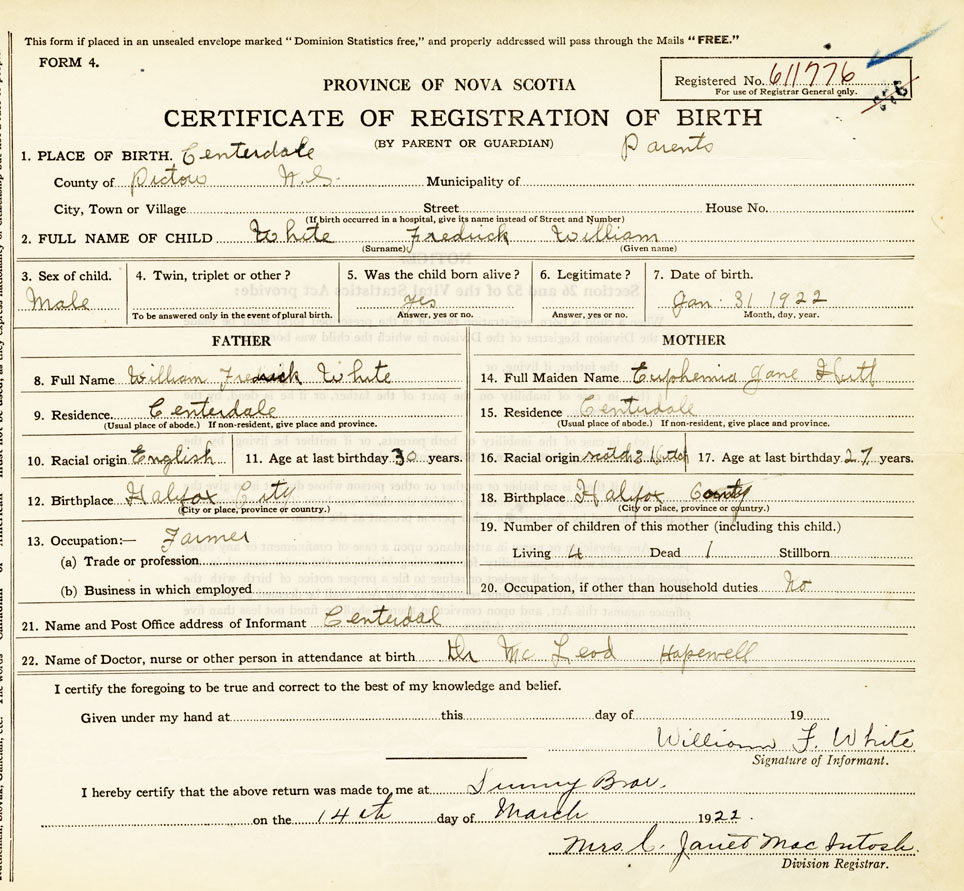 This form if placed in an unsealed envelope marked "Dominion Statistics free," and properly addressed will pass through the Mails "FREE."
FORM 4.
Registered No. 611776
For use of Registrar General only.
PROVINCE OF NOVA SCOTIA
CERTIFICATE OF REGISTRATION OF BIRTH
(BY PARENT OR GUARDIAN) Parents
1. PLACE OF BIRTH. Centerdale
County of Pictou N.S. Municipality of
City, Town or Village Street House No.
(If birth occurred in a hospital, give its name instead of Street and Number)
2. FULL NAME OF CHILD White Fredrick William
(Surname) (Given name)
3. Sex of child. 4. Twin, triplet or other? 5. Was the child born alive? 6. Legitimate? 7. Date of birth.
Male yes Jan. 31 1922
To be answered only in the event of plural birth. Answer, yes or no. Answer, yes or no. Month, day, year.
FATHER
8. Full Name William Fredrick White
9. Residence. Centerdale
(Usual place of abode.) If non-resident, give place and province.
10. Racial origin English 11. Age at last birthday 30 years.
12. Birthplace Halifax City
(City or place, province or country.)
13. Occupation:— Farmer
(a) Trade or profession
(b) Business in which employed
MOTHER
14. Full Maiden Name Euphemia Jane Hutt
15. Residence Centerdale
(Usual place of abode.) If non-resident, give place and province.
16. Racial origin 17. Age at last birthday 27 years.
18. Birthplace Halifax County
(City or place, province or country.)
19. Number of children of this mother (including this child.)
Living 4 Dead 1 Stillborn
20. Occupation, if other than household duties No
21. Name and Post Office address of Informant Centerdal
22. Name of Doctor, nurse or other person in attendance at birth Dr Mc Leod Hopewell
I certify the foregoing to be true and correct to the best of my knowledge and belief.
Given under my hand at this day of 19
William F. White
Signature of Informant.
I hereby certify that the above return was made to me at Sunny Brae.
on the 14th day of March 1922.
Mrs. C. Janet MacIntosh.
Division Registrar.